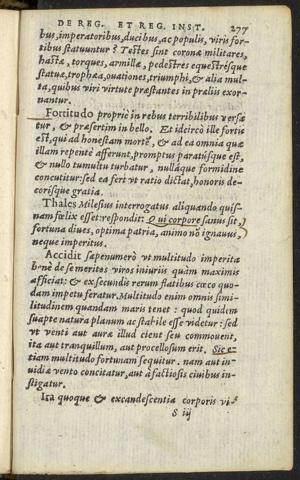 DE REG. ET REG. INST. 277
bus, imperatoribus, ducibus, ac populis, viris for-
tibus statuuntur? Testes sint coronæ militares,
hastæ, torques, armillæ, pedestres equestrésque
statuæ, trophæa, ouationes, triumphi, & alia mul-
ta, quibus viri virtute præstantes in præliis exor-
nantur.
Fortitudo propriè in rebus terribilibus versa-
tur, & præsertim in bello. Et idcircò ille fortis
est, qui ad honestam mortē, & ad ea omnia quæ
illam repentè afferunt, promptus paratúsque est,
& nullo tumultu turbatur, nullàque formidine
concutitur: sed ea fert vt ratio dictat, honoris de-
corísque gratia.
Thales Milesius interrogatus aliquando quis-
nam fœlix esset: respondit: Qui corpore sanus sit,
fortuna diues, optima patria, animo nō ignauus,
neque imperitus.
Accidit sæpenumerò vt multitudo imperita
benè de se meritos viros iniuriis quàm maximis
afficiat: & ex secundis rerum flatibus cœco quo-
dam impetu feratur. Multitudo enim omnis simi-
litudinem quandam maris tenet: quod quidem
suapte natura planum ac stabile esse videtur: sed
vt venti aut auræ illud cient seu commouent,
ita aut tranquillum, aut procellosum erit. Sic e-
tiam multitudo fortunam sequitur. nam aut in-
uidiæ vento concitatur, aut à factiosis ciuibus in-
stigatur.
Ita quoque & excandescentia corporis vi-
S iij